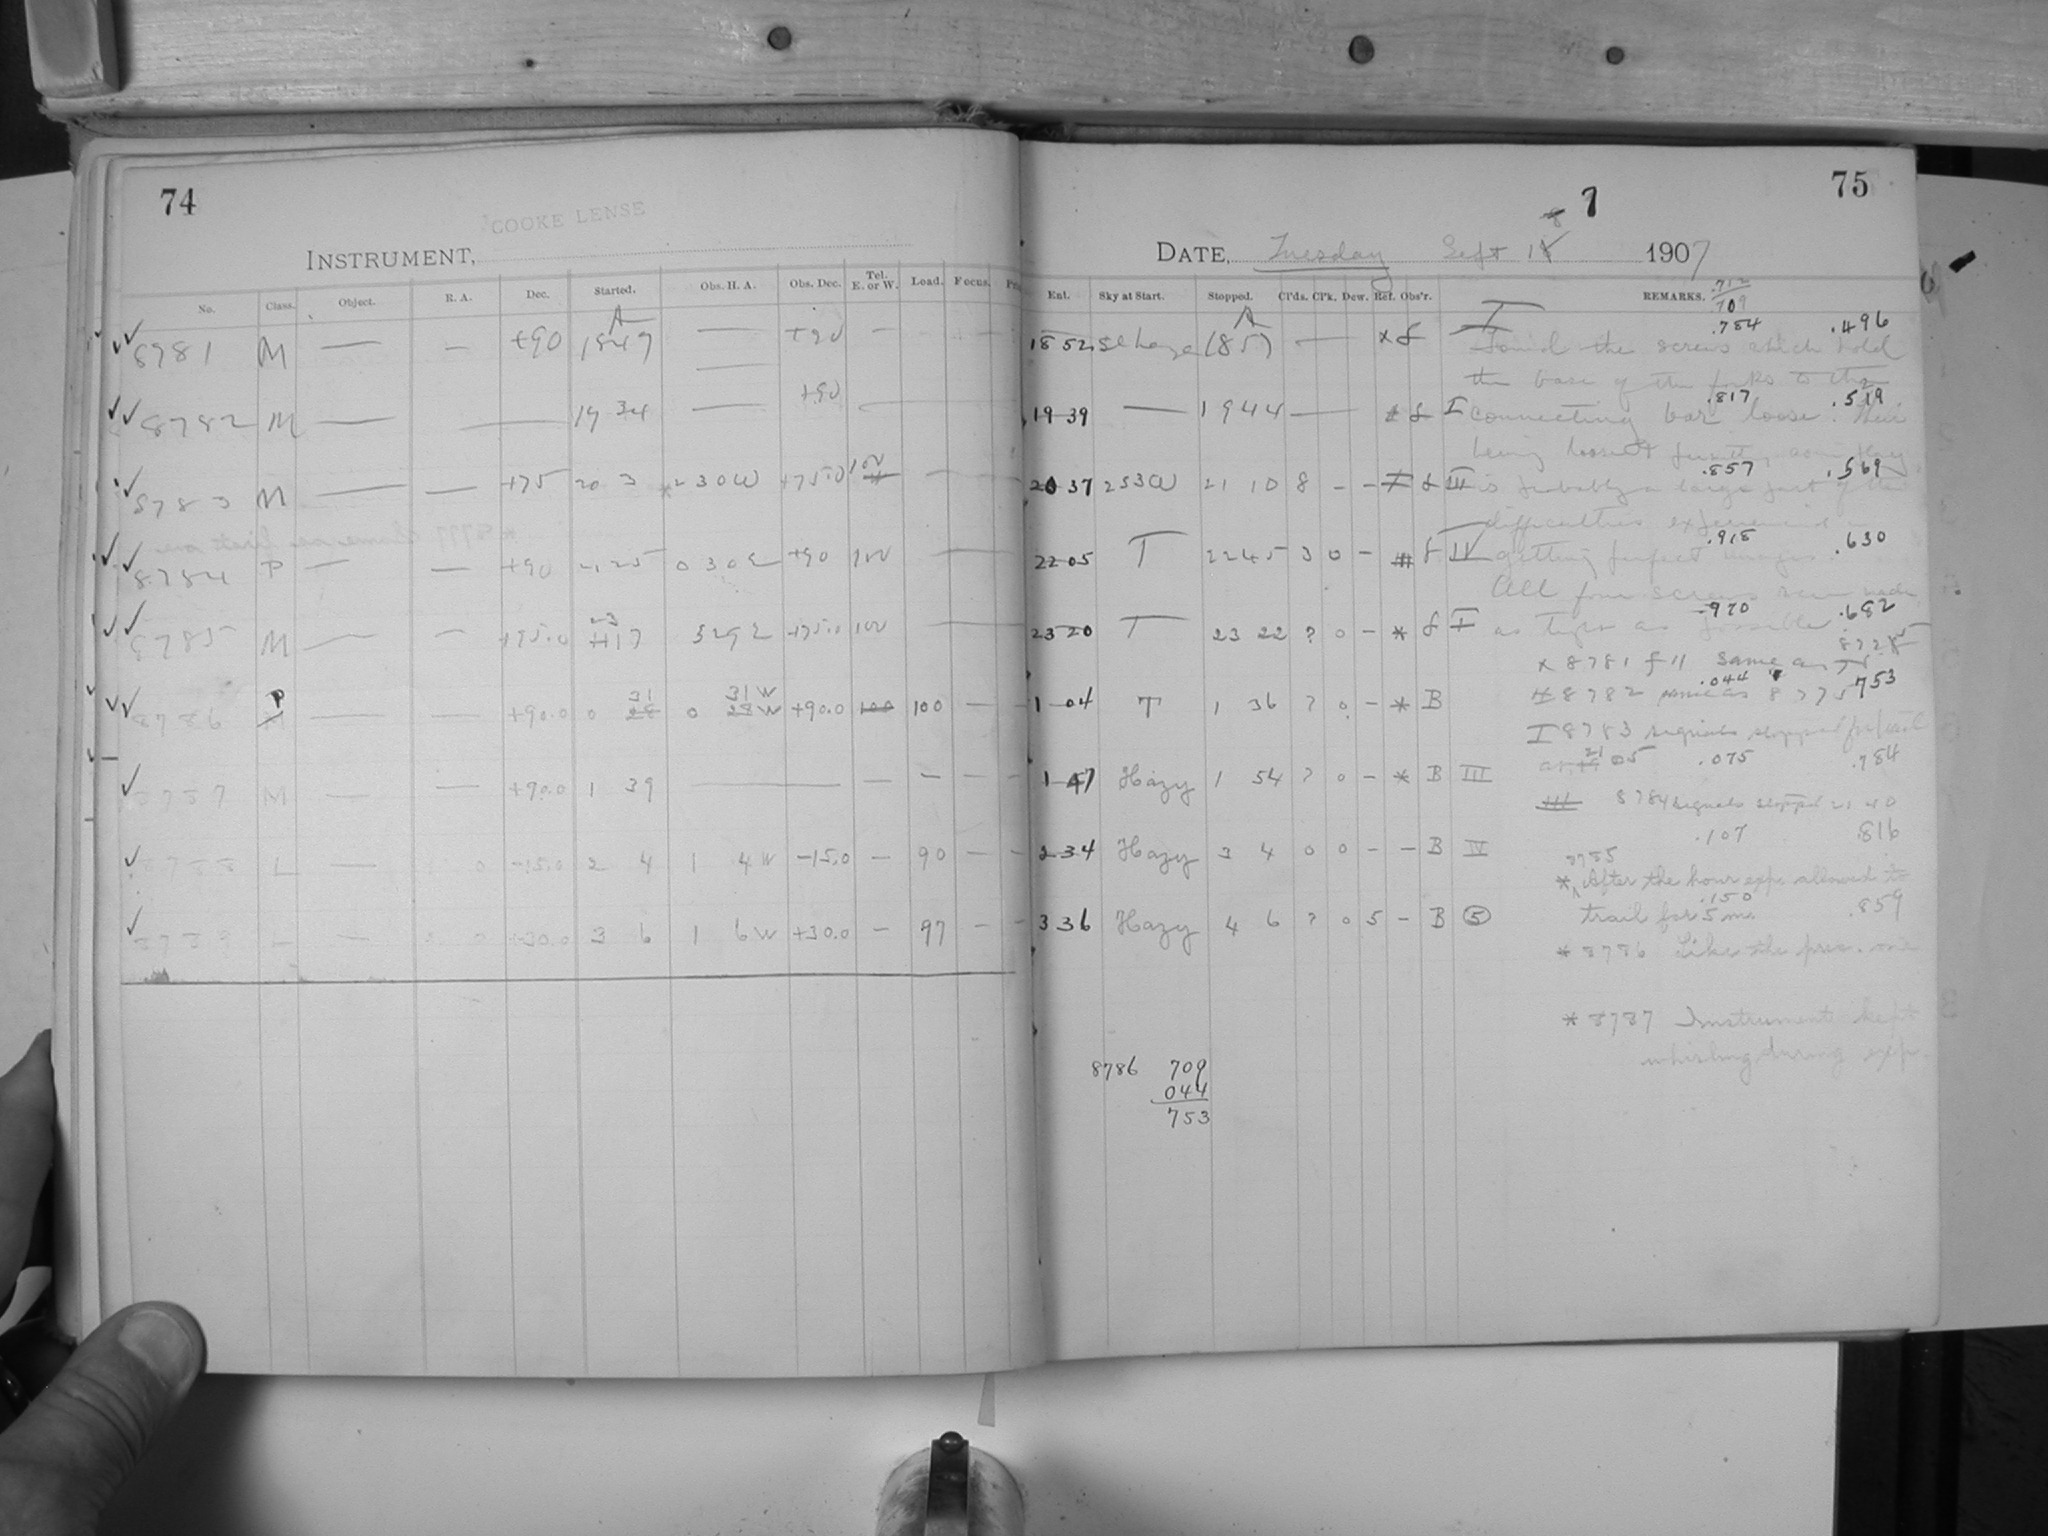 74
COOKE LENSE
INSTRUMENT,
No. Class. Object. R. A. Dec. Started. Obs. H. A. Obs. Dec. Tel. E. or W. Load. Focus.
8781 M — — +90 1847 — +90 —
8782 M — — 19 34 — +90 —
8783 M — — +75 20 3 *2 30W +75.0 100 —
8784 P — — +90 21 25 0 30E +90 100 —
8785 M — — +75.0 23 17 329E +75.0 100 —
8786 P — — +90.0 0 31 0 31W +90.0 100 100 —
8787 M — — +90.0 1 39 — — — — —
8788 L — 0 -15.0 2 4 1 4W -15.0 — 90 — —
8789 L — 0 +30.0 3 6 1 6W +30.0 — 97 — —
75
7
DATE, Tuesday Sept 1 1907
Ent. Sky at Start. Stopped. Cl'ds. Cl'k. Dew. Ref. Obs'r. REMARKS. .712
709
18 52 Sl haze 1857 — x f I .784 .496
Found the screws which hold
the base of the forks to the
19 39 — 1944 — f I connecting bar loose. Their .817 .529
being loose
20 37 253W 21 10 8 - - f III is probably a large part of the .857 .569
difficulties experienced in
22 05 T 2245 3 0 - f IV getting perfect images .918 .630
All four screws were made
23 20 T 23 22 ? 0 - * f I as tight as possible .970 .682
x 8781 f 11 same as 8728
1 04 T 1 36 ? 0 - * B 8782 same as 8775 .044 753
8783 signals stopped
at 21 05 .075 .784
1 47 Hazy 1 54 ? 0 - * B III
8784 signals stopped 21 40
.107 .816
2 34 Hazy 3 4 0 0 - - B IV
8785
* After the hour exp. allowed to
trail for 5 m. .150 .859
3 36 Hazy 4 6 ? 0 5 - B 5
* 8786 Like the prev. one
* 8787 Instrument kept
whirling during exp.
8786 709
044
753